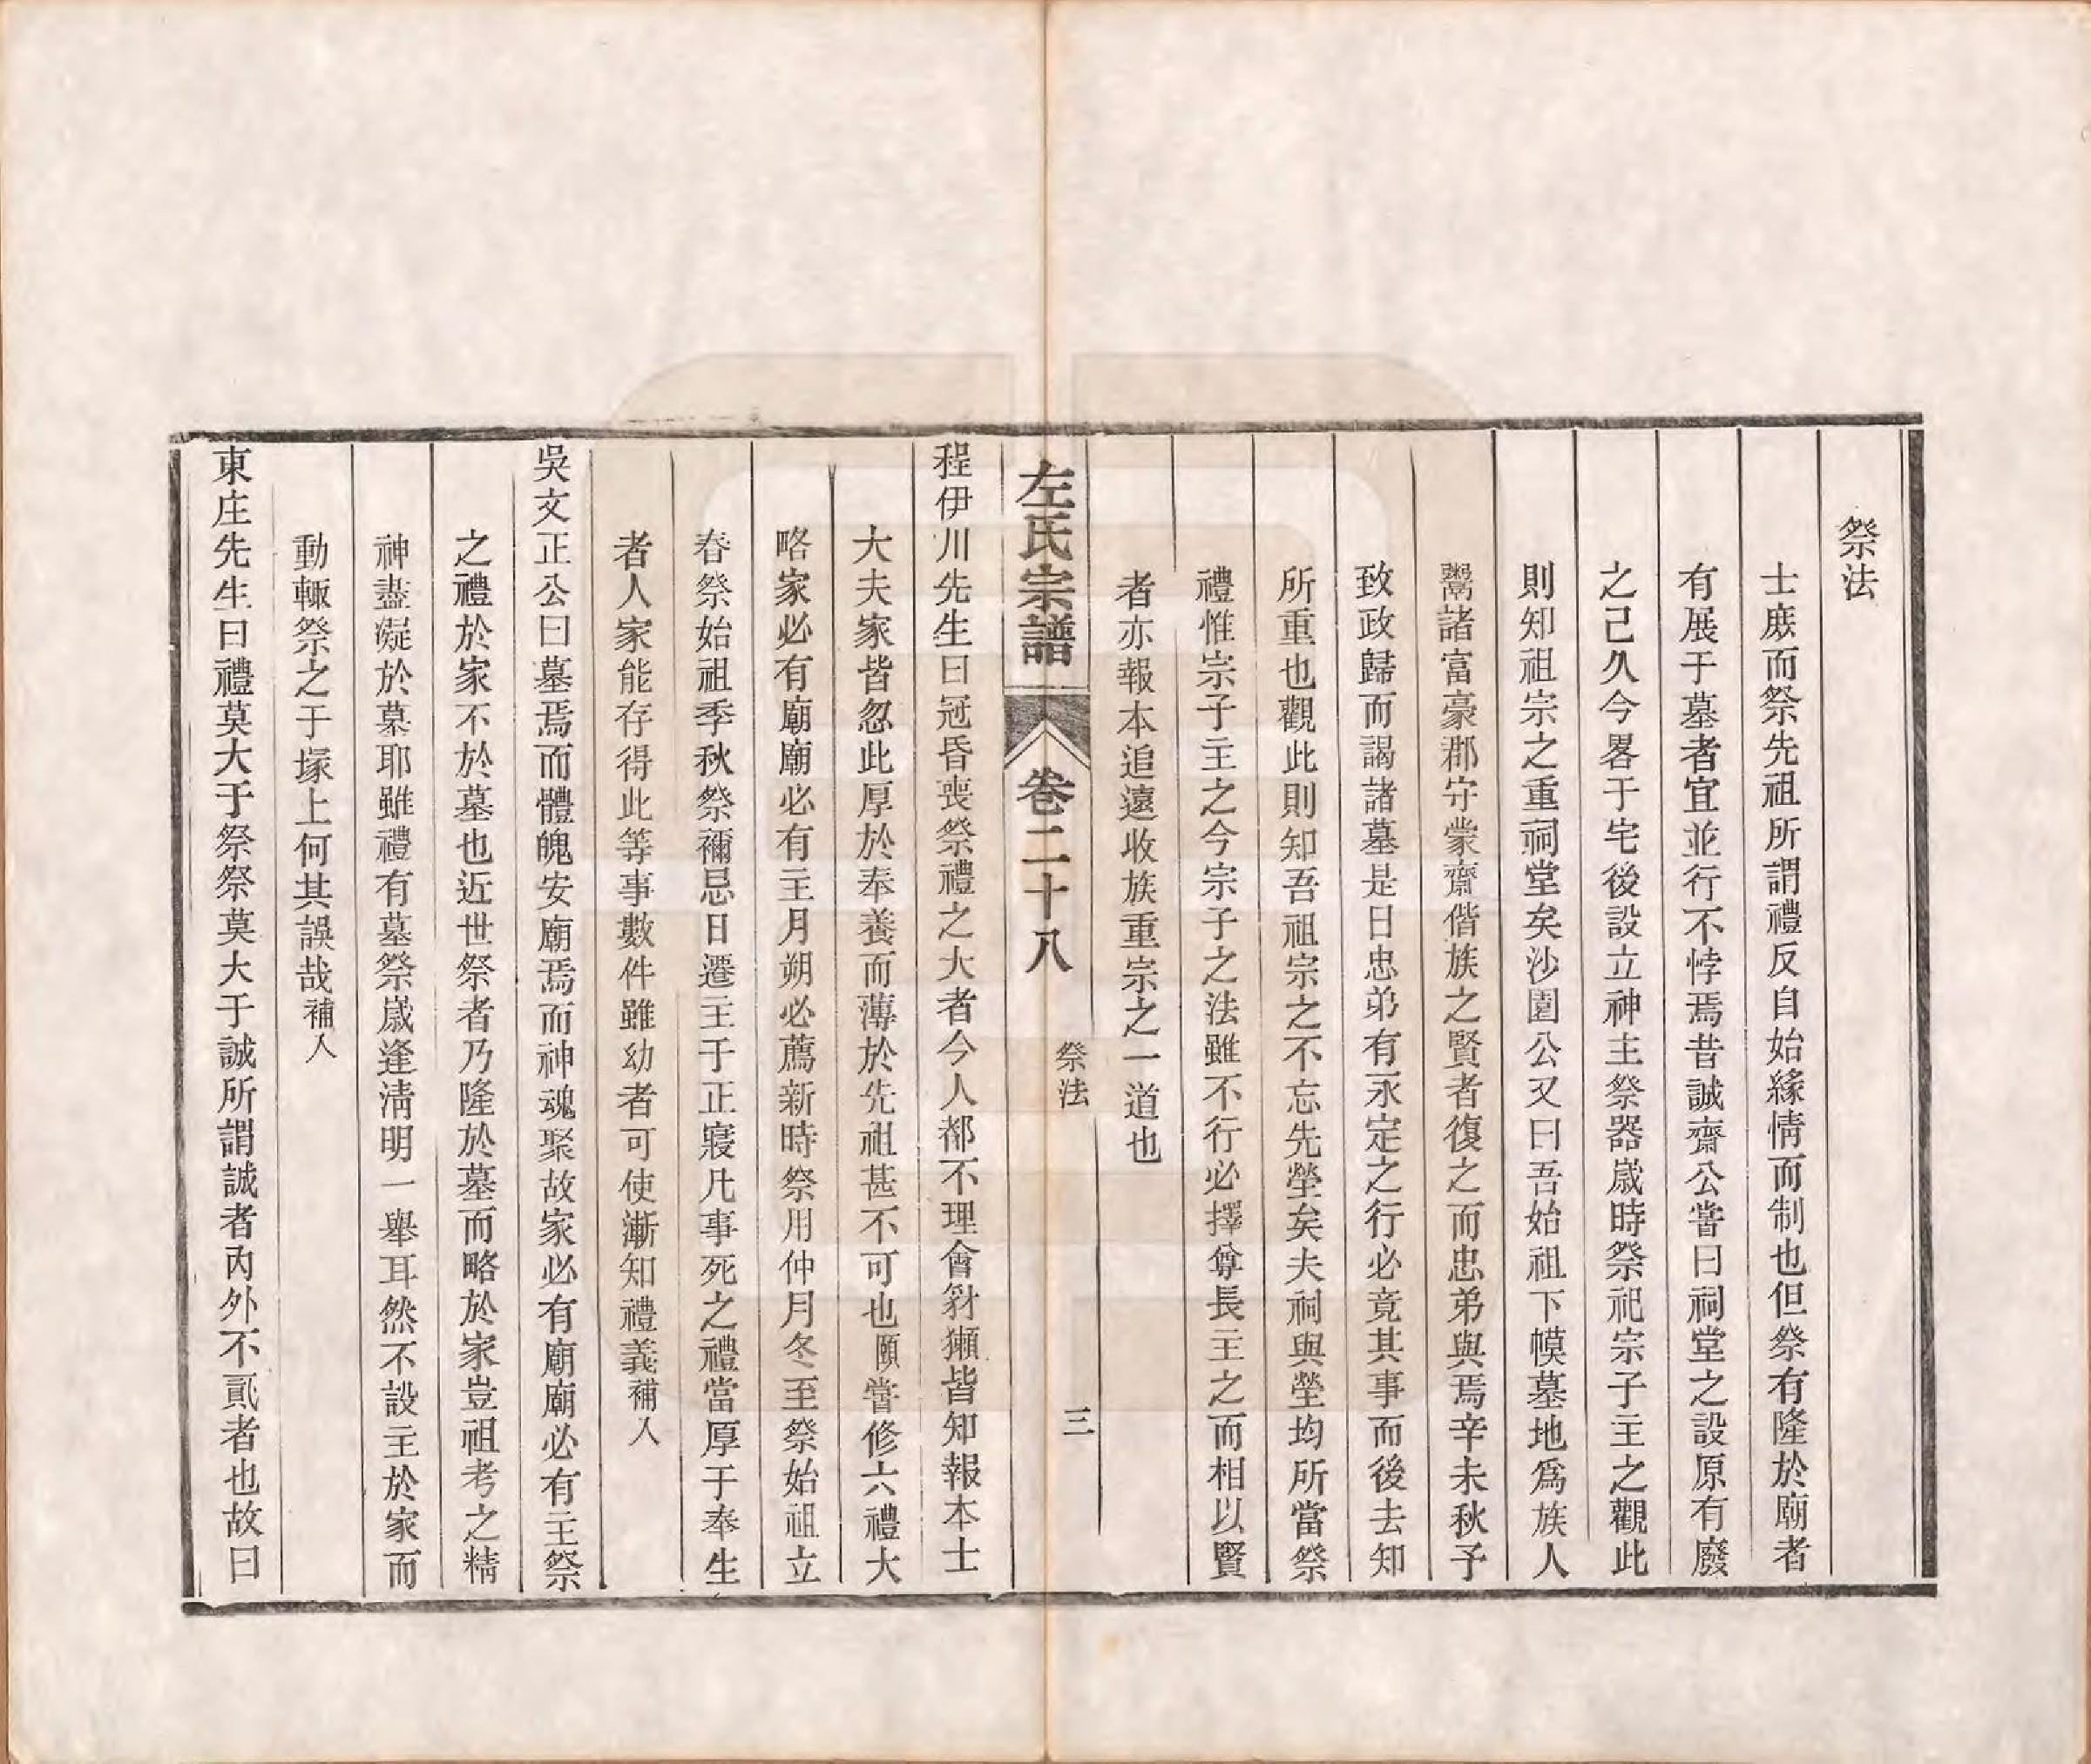 祭法
士庶而祭先祖所謂禮反自始緣情而制也但祭有隆於廟者
有展于墓者宜並行不悖焉昔誠齋公嘗曰祠堂之設原有廢
之己久今畧于宅後設立神主祭器歲時祭祀宗子主之觀此
則知祖宗之重祠堂矣沙園公又曰吾始祖下幙墓地爲族人
鬻諸富豪郡守蒙齋偕族之賢者復之而忠弟與焉辛未秋予
致政歸而謁諸墓是日忠弟有永定之行必竟其事而後去知
所重也觀此則知吾祖宗之不忘先塋矣夫祠與塋均所當祭
禮惟宗子主之今宗子之法雖不行必擇尊長主之而相以賢
者亦報本追遠收族重宗之一道也
左氏宗譜 卷二十八 祭法 三
程伊川先生曰冠昏喪祭禮之大者今人都不理會豺獺皆知報本士
大夫家皆忽此厚於奉養而薄於先祖甚不可也頤嘗修六禮大
略家必有廟廟必有主月朔必薦新時祭用仲月冬至祭始祖立
春祭始祖季秋祭禰忌日遷主于正寢凡事死之禮當厚于奉生
者人家能存得此等事數件雖幼者可使漸知禮義補入
吳文正公曰墓焉而體魄安廟焉而神魂聚故家必有廟廟必有主祭
之禮於家不於墓也近世祭者乃隆於墓而略於家豈祖考之精
神盡凝於墓耶雖禮有墓祭歲逢淸明一舉耳然不設主於家而
動輒祭之于塚上何其誤哉補入
東庄先生曰禮莫大于祭祭莫大于誠所謂誠者內外不貳者也故曰